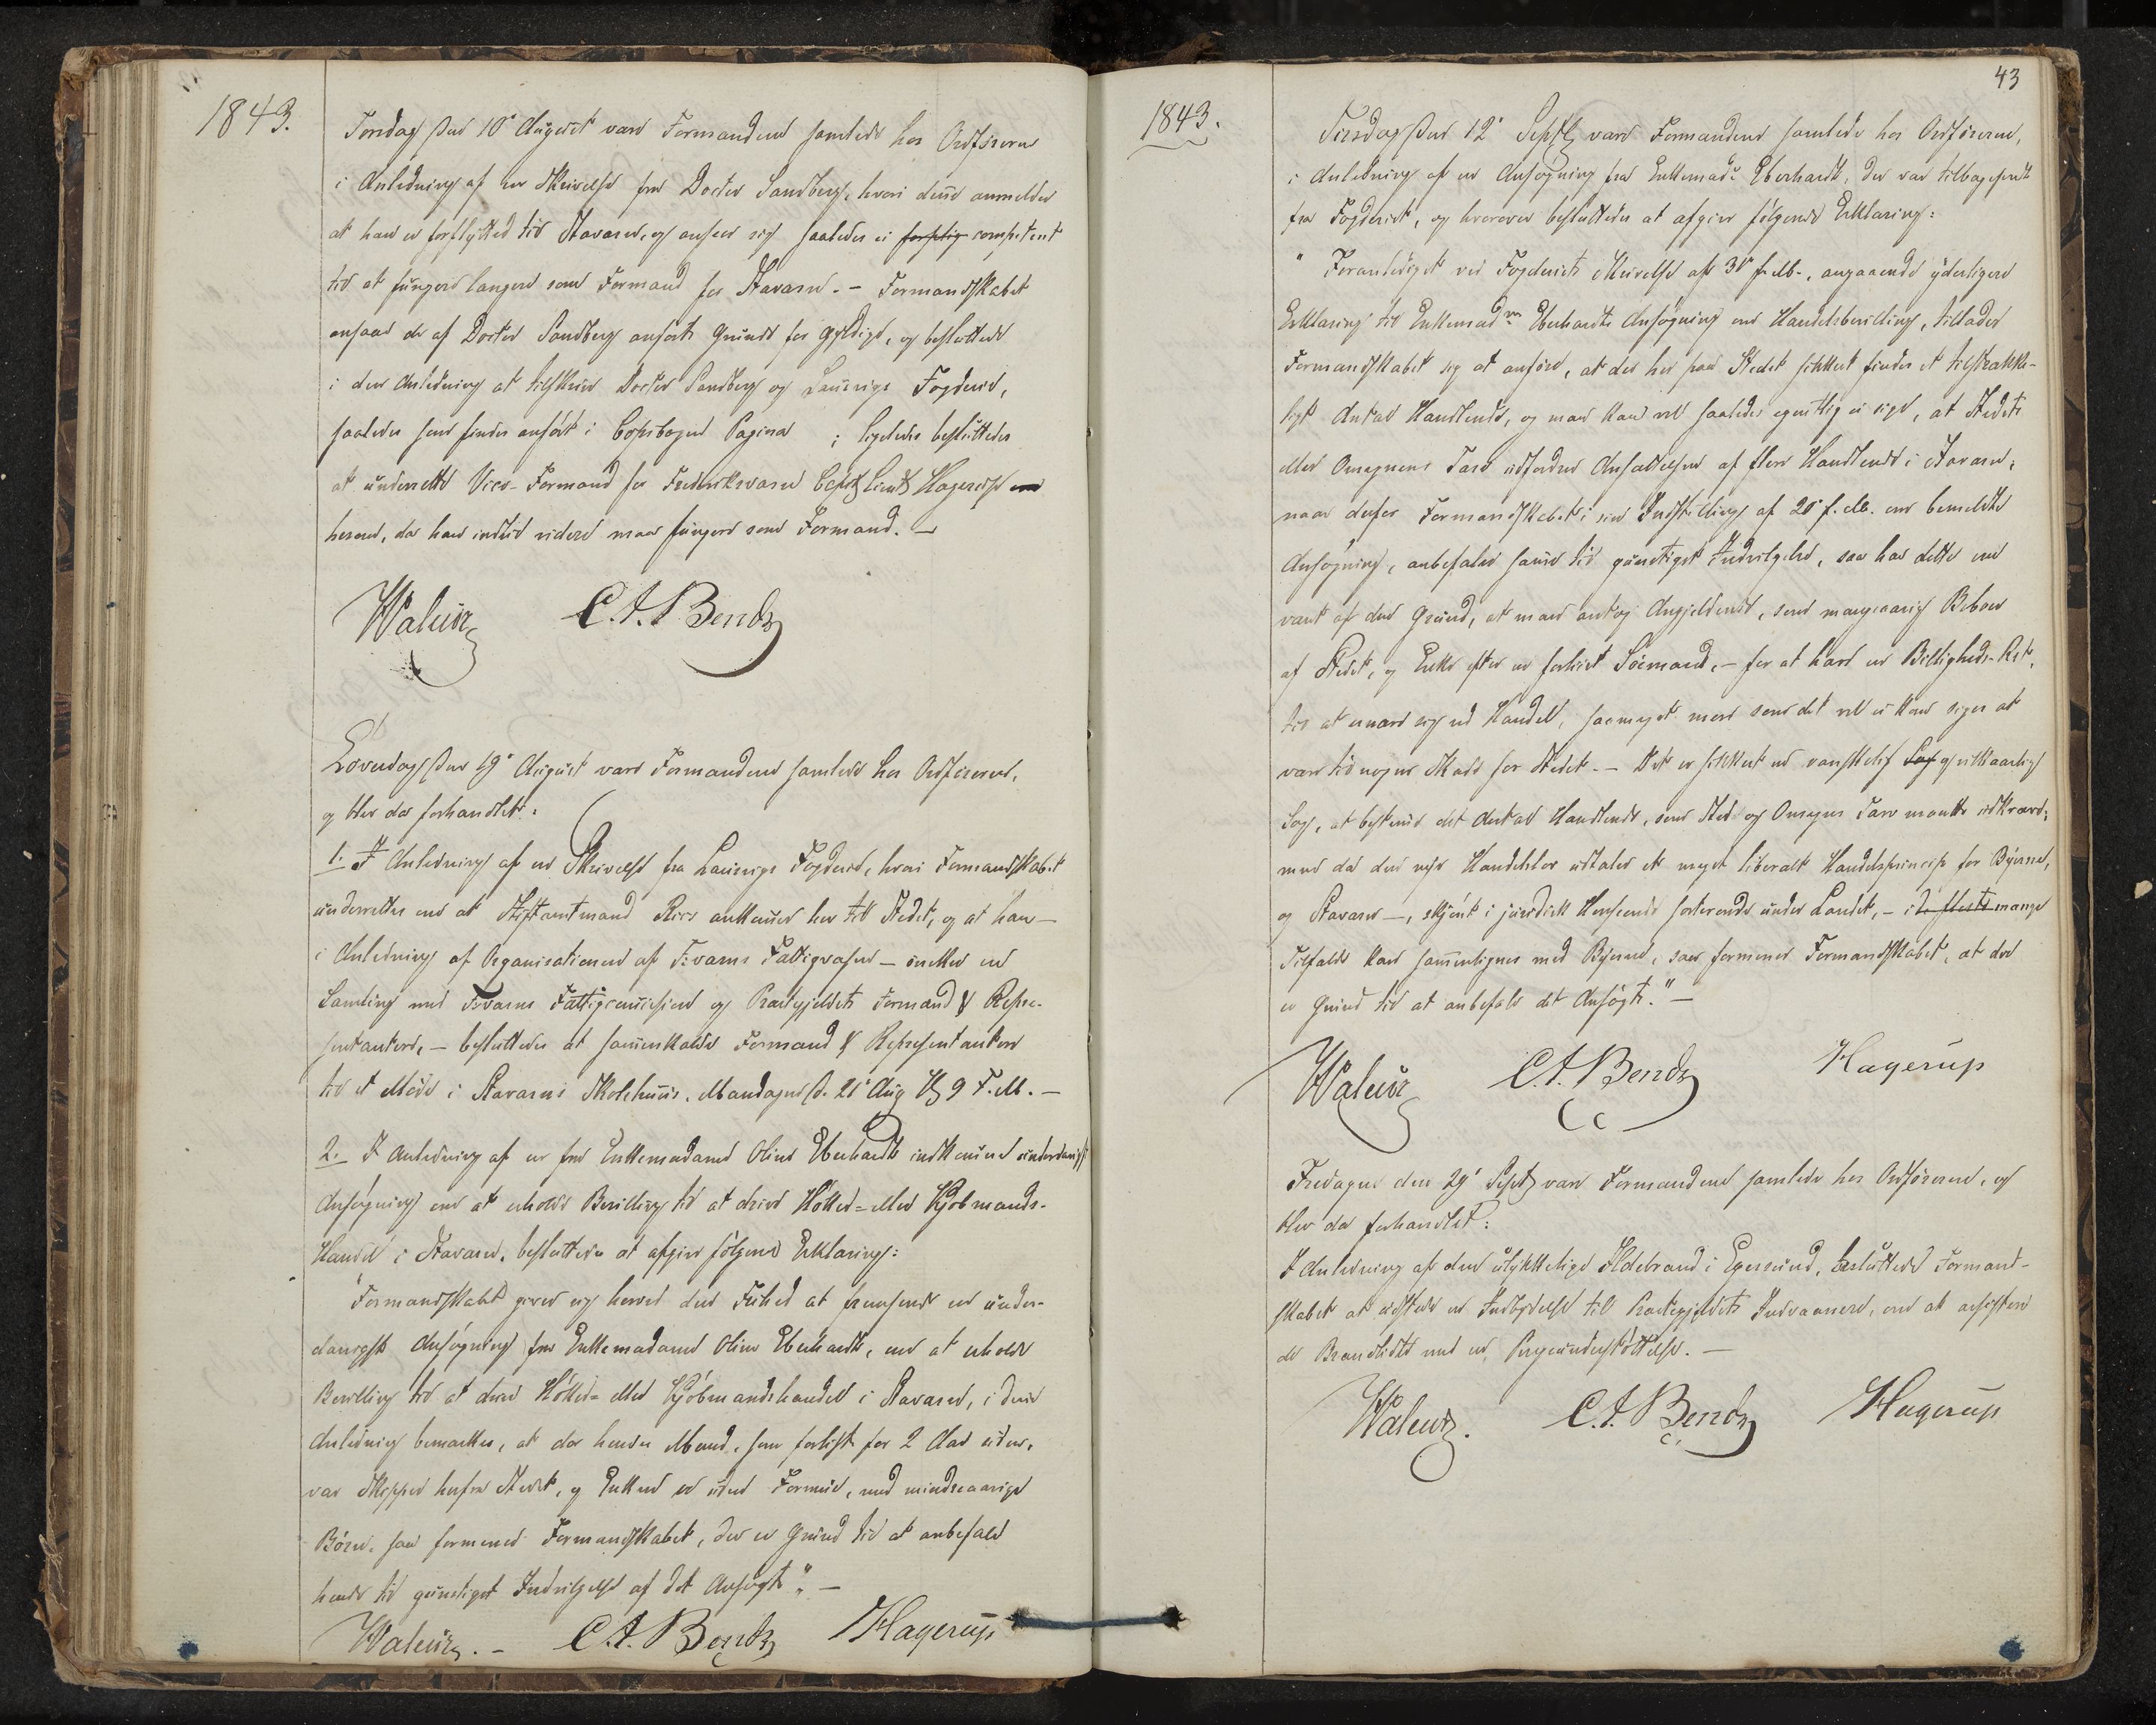 1843.
Torsdag den 10de August vare Formændene samlede hos Ordføreren
i Anledning af en Skrivelse fra Doctor Sandberg, hvori denne anmelder
at han er forflyttet til Staværn, og anseer sig saaledes ei competent
til at fungere længere som Formand for Staværn. – Formandskabet
ansaae de af Doctor Sandberg anførte Grunde for gyldige, og besluttede
i den Anledning at tilskrive Doctor Sandberg og Laurvigs Fogderie,
saaledes som findes anført i Copibogen Pagina ; ligeledes besluttedes
at underrette Vice-Formand for Frederiksværn Hagerup
herom, da han indtil videre maa fungere som Formand. –
Waleur C. A. Bentz
Løverdag den 19de August vare Formændene samlede hos Ordføreren,
og blev da forhandlet:
1. I Anledning af en Skrivelse fra Laurvigs Fogderie, hvori Formandskabet
underrettes om at Stiftamtmand Ries ankommer her til Stedet, og at han –
i Anledning af Organisationen af Fattigvæsen – ønsker en
Samling med Fattigcommission og Præstegjeldets Formænd & Repræ-
sentantere, – besluttedes at sammenkalde Formænd & Repræsentantere
til et Møde i Staværns Skolehuus, Mandagen d. 21de Aug Kl 9 F.M. –
2. I Anledning af en fra Enkemadame Oline Eberhardt indkommen underdanigst
Ansøgning om at erholde Bevilling til at drive Høker- eller Kjøbmands-
Handel i Staværn, besluttedes at afgive følgende Erklæring:
"Formandskabet giver sig herved den Frihed at fremsende en under-
danigst Ansøgning fra Enkemadame Oline Eberhardt, om at erholde
Bevilling til at drive Høker- eller Kjøbmandshandel i Staværn, i denne
Anledning bemærkes, at da hendes Mand, som forliste for 2 Aar siden,
var Skipper herfra Stedet, og Enken er uden Formue, med mindreaarige
Børn, saa formener Formandskabet, der er Grund til at anbefale
hende til gunstigst Indvilgelse af det Ansøgte". –
Waleur. – C. A. Bentz Hagerup
43
1843.
Tirsdag den 12te Septbr vare Formændene samlede hos Ordføreren,
i Anledning af en Ansøgning fra Enkemade Eberhardt, der var tilbagesendt
fra Fogderiet, og hvorover besluttedes at afgive følgende Erklæring:
"Foranlediget ved Fogderiets Skrivelse af 30te f. M., angaaende yderligere
Erklæring til Enkemadm Eberhardts Ansøgning om Handelsbevilling, tillader
Formandskabet sig at anføre, at der her paa Stedet sikkert findes et tilstrække-
ligt Antal Handlende, og man kan vel saaledes egentlig ei sige, at Stedets
eller Omegnens Tarv udfordrer Ansættelsen af flere Handlende i Staværn;
naar derfor Formandskabet i sin Indstilling af 20de f. M. om bemeldte
Ansøgning, anbefalede samme til gunstigst Indvilgelse, saa har dette
været af den Grund, at man antog Angjeldende, som mangeaarig Beboer
af Stedet, og Enke efter en forliist Søemand, – for at have en Billigheds-Ret,
til at ernære sig ved Handel, saameget mere som det vel ei kan siges at
være til nogen Skade for Stedet. – Det er sikkert en vanskelig Sag og vilkaarlig
Sag, at bestemme det Antal Handlende, som Sted og Omegns Tarv maatte udkræve;
men da den nye Handelslov udtaler et meget liberalt Handelsprincip for Byerne,
og Staværn –, skjønt i juridisk Henseende sorterende under Landet, – i de fleste mange
Tilfælde kan sammenlignes med Byerne, saa formener Formandskabet, at der
er Grund til at anbefale det Ansøgte." –
Waleur C. A. Bentz Hagerup
Fredagen den 29de Septbr vare Formændene samlede hos Ordføreren, og
blev da forhandlet:
I Anledning af den ulykkelige Ildebrand i Egersund, besluttede Formand-
skabet at udstede en Indbydelse til Præstegjeldets Indvaanere, om at assistere
de Brandlidte med en Pengeunderstøttelse. –
Waleur. C. A. Bentz Hagerup